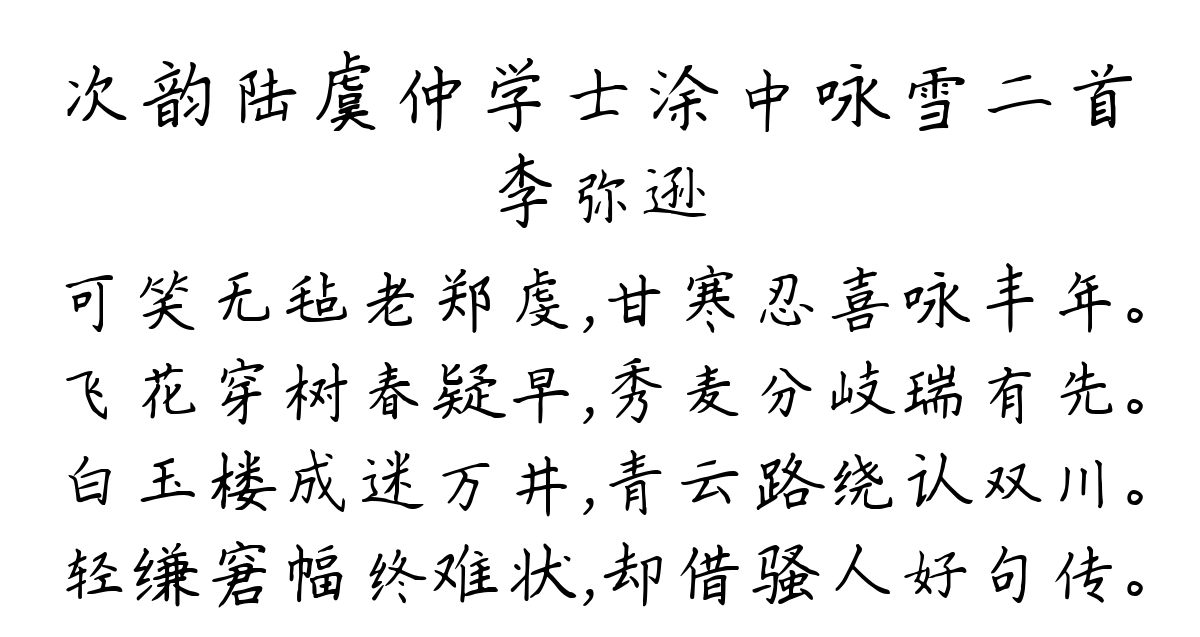 次韵陆虞仲学士涂中咏雪二首
李弥逊
可笑无毡老郑虔,甘寒忍喜咏丰年。
飞花穿树春疑早,秀麦分岐瑞有先。
白玉楼成迷万井,青云路绕认双川。
轻缣窘幅终难状,却借骚人好句传。